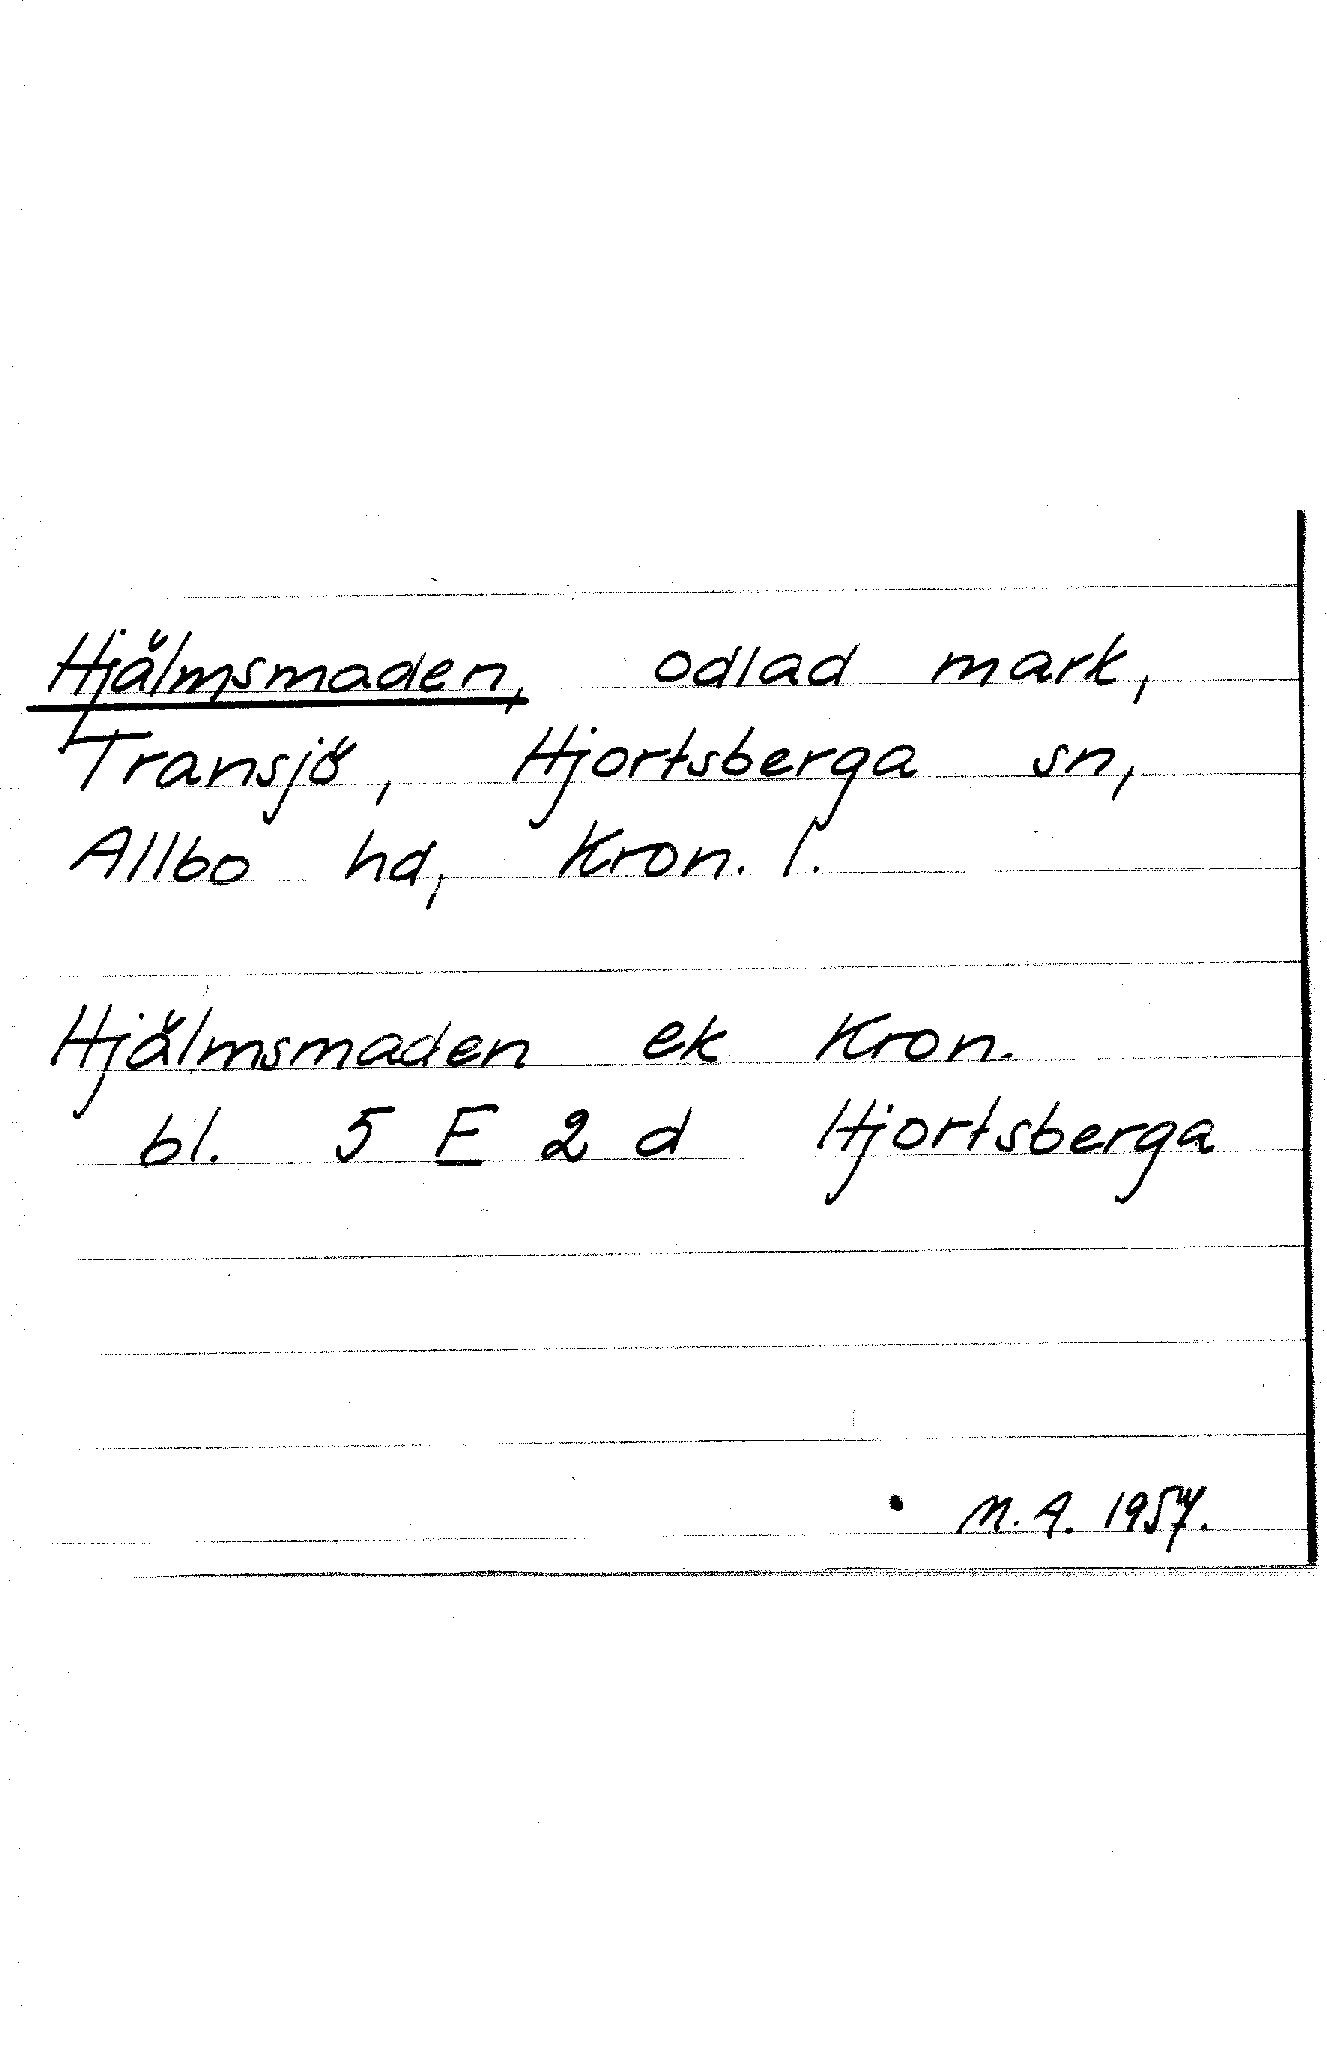 Hjälmsmaden, odlad mark,
Transjö, Hjortsberga sn,
Allbo hd, Kron. l.
Hjälmsmaden ek Kron.
bl. 5 E 2 d Hjortsberga
M. A. 1957.